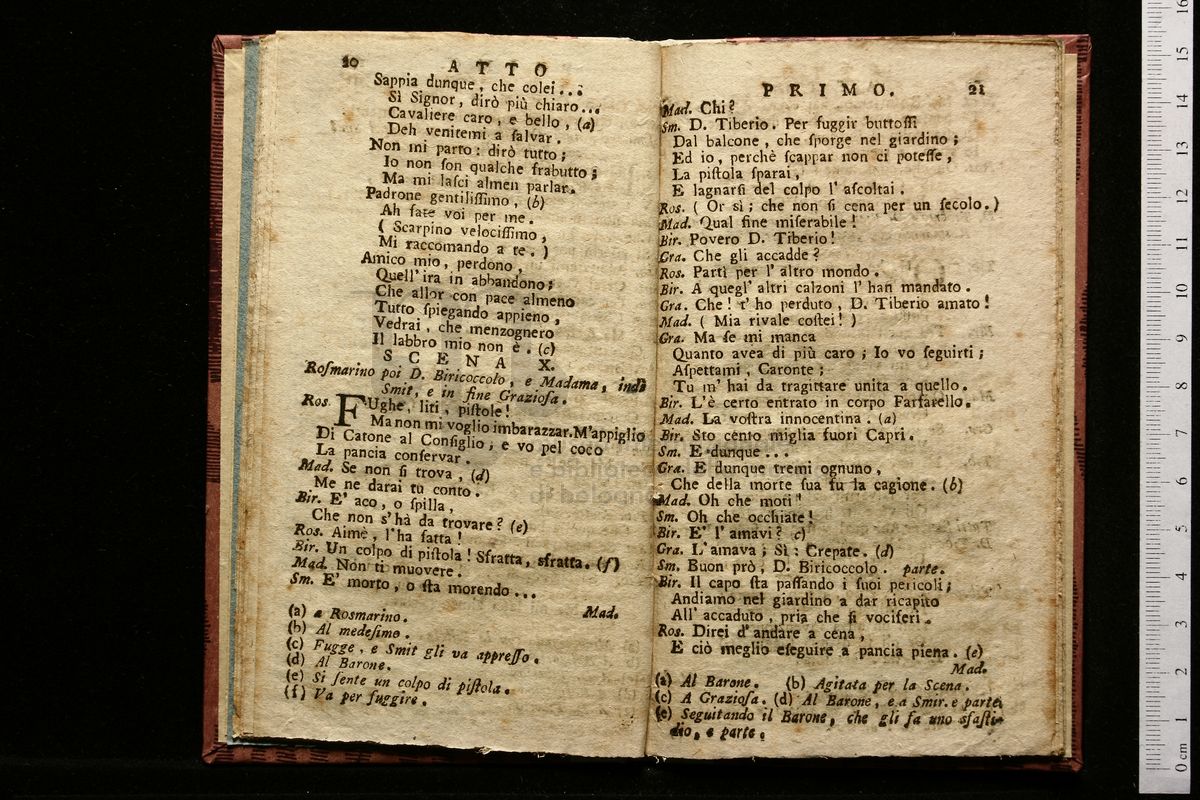 20
ATTO
Sappia dunque, che colei...
Sì Signor, dirò più chiaro...
Cavaliere caro, e bello, (a)
Deh venitemi a ſalvar.
Non mi parto: dirò tutto;
Io non ſon qualche frabutto;
Ma mi laſci almen parlar.
Padrone gentiliſſimo, (b)
Ah fate voi per me.
( Scarpino velociſſimo,
Mi raccomando a te. )
Amico mio, perdono,
Quell' ira in abbandono;
Che allor con pace almeno
Tutto ſpiegando appieno,
Vedrai, che menzognero
Il labbro mio non è. (c)
SCENA X.
Roſmarino poi D. Biricoccolo, e Madama, indi
Smit, e in fine Grazioſa.
Ros. FUghe, liti, piſtole!
Ma non mi voglio imbarazzar. M'appiglio
Di Catone al Conſiglio; e vo pel coco
La pancia conſervar.
Mad. Se non ſi trova, (d)
Me ne darai tu conto.
Bir. E' aco, o ſpilla,
Che non s'hà da trovare? (e)
Ros. Aimè, l'ha fatta!
Bir. Un colpo di piſtola! Sfratta, sfratta. (f)
Mad. Non ti muovere.
Sm. E' morto, o ſta morendo...
Mad.
(a) a Rosmarino.
(b) Al medeſimo.
(c) Fugge, e Smit gli va appreſſo.
(d) Al Barone.
(e) Si ſente un colpo di piſtola.
(f) Va per fuggire.
PRIMO.
21
Mad. Chi?
Sm. D. Tiberio. Per fuggir buttoſſi
Dal balcone, che ſporge nel giardino;
Ed io, perchè ſcappar non ci poteſſe,
La piſtola ſparai,
E lagnarſi del colpo l' aſcoltai.
Ros. ( Or sì; che non ſi cena per un ſecolo. )
Mad. Qual fine miſerabile!
Bir. Povero D. Tiberio!
Gra. Che gli accadde?
Ros. Partì per l' altro mondo.
Bir. A quegl' altri calzoni l' han mandato.
Gra. Che! t' ho perduto, D. Tiberio amato!
Mad. ( Mia rivale coſtei! )
Gra. Ma ſe mi manca
Quanto avea di più caro; Io vo ſeguirti;
Aſpettami, Caronte;
Tu m' hai da tragittare unita a quello.
Bir. L'è certo entrato in corpo Farfarello.
Mad. La voſtra innocentina. (a)
Bir. Sto cento miglia fuori Capri.
Sm. E dunque...
Gra. E dunque tremi ognuno,
Che della morte ſua fu la cagione. (b)
Mad. Oh che moti!
Sm. Oh che occhiate!
Bir. E' l' amavi? c)
Gra. L'amava; Sì: Crepate. (d)
Sm. Buon prò, D. Biricoccolo. parte.
Bir. Il capo ſta paſſando i ſuoi pericoli;
Andiamo nel giardino a dar ricapito
All' accaduto, pria che ſi vociferi.
Ros. Direi d' andare a cena,
E ciò meglio eſeguire a pancia piena. (e)
Mad.
(a) Al Barone. (b) Agitata per la Scena.
(c) A Grazioſa. (d) Al Barone, e a Smir. e parte.
(e) Seguitando il Barone, che gli fa uno sfaſti-
dio, e parte.
0 cm 1 2 3 4 5 6 7 8 9 10 11 12 13 14 15 16